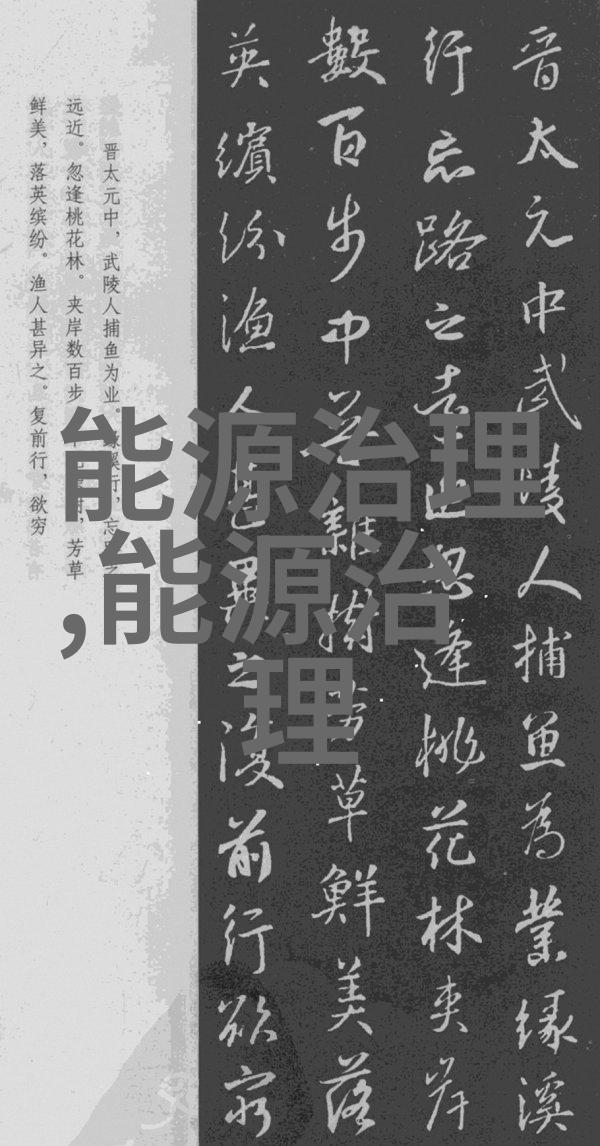 晋太元中武陵人捕魚為業緣溪
行忘路之遠近忽逢桃花林夾岸
數百步中無雜樹芳草鮮美落
英繽紛漁人甚異之復前行欲窮
晋太元中，武陵人捕鱼为业。缘溪行，忘路之
远近。忽逢桃花林。夹岸数百步，中无杂树，芳草
鲜美，落英缤纷。渔人甚异之。复前行，欲穷
能源治理
,能源治
理